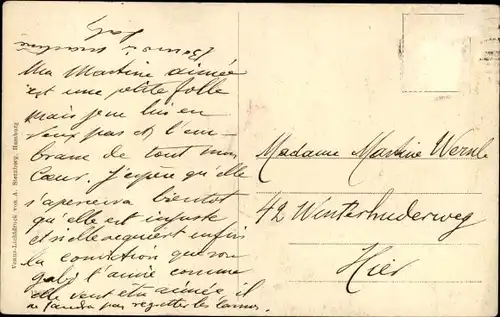 Ma Martine aimée
est une petite folle
mais je ne lui en
veux pas et l'em-
brasse de tout mon
Cœur. J'espère qu'elle
s'apercevra bientot
qu'elle est injuste
et si elle acquiert enfin
la conviction que son
gaby l'aime comme
elle veut être aimée il
ne faudra pas regretter les larmes.
Gaby
Venus-Lichtdruck von A. Sternberg, Hamburg
Madame Martine Wernle
42 Winterhuderweg
Hier